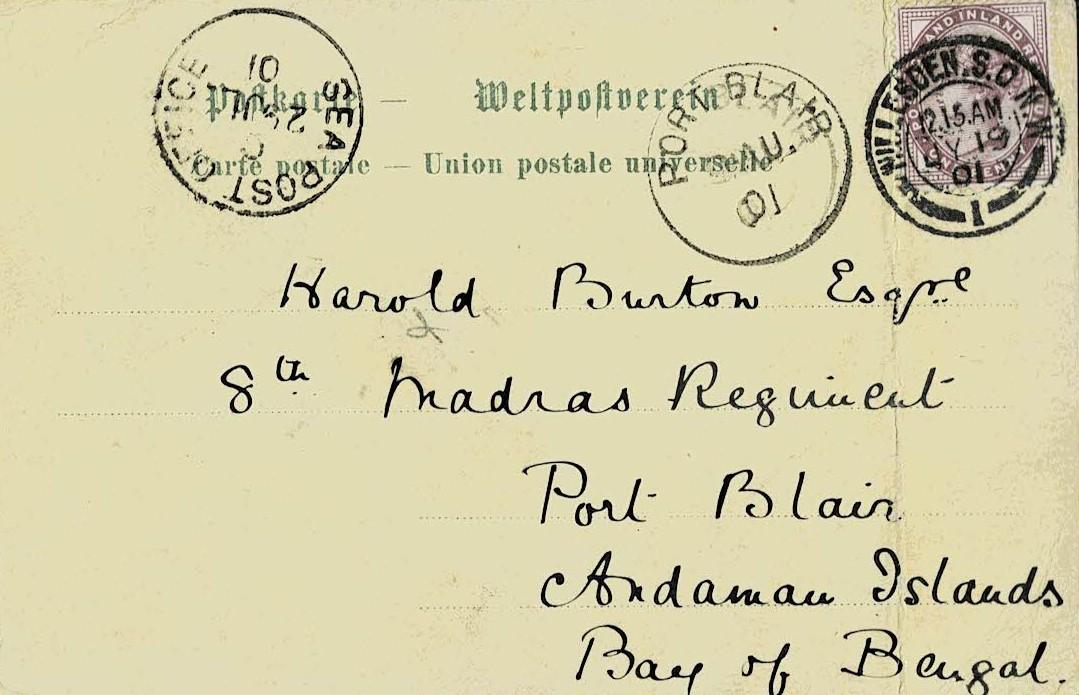 Postkarte — Weltpostverein
Carte postale — Union postale universelle
SEA POST OFFICE
01
PORT BLAIR
AU.
01
WILLESDEN.S.O. N.W
12.15.AM
JY 19
01
1
Harold Burton Esqre
8th Madras Regiment
Port Blair
Andaman Islands
Bay of Bengal.